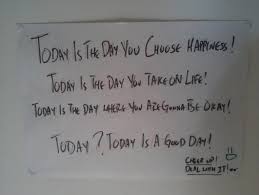 Today Is The Day You Choose Happiness!
Today Is The Day You Take On Life!
Today Is The Day Where You Are Gonna Be Okay!
Today? Today Is A Good Day!
Cheer Up!
Deal With It!..